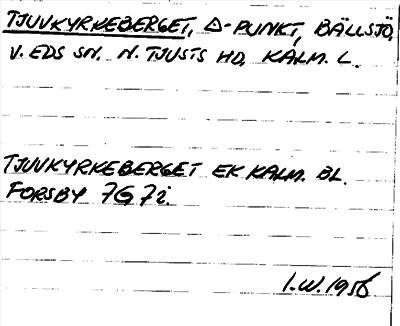 TJUVKYRKEBERGET, Δ-PUNKT, BÄLLSJÖ,
V. EDS SN. N. TJUSTS HD, KALM. L.
TJUVKYRKEBERGET EK KALM. BL.
FORSBY 7G 7i.
I.W. 1956